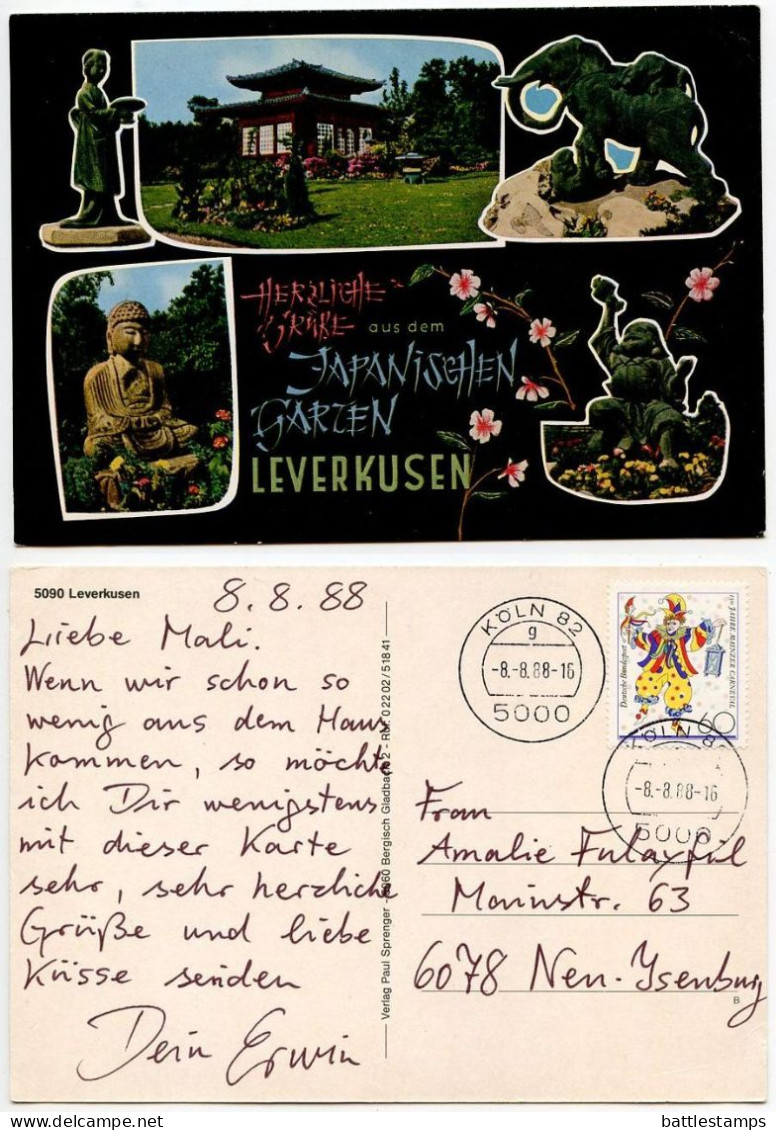 HERZLICHE
GRÜßE aus dem
JAPANISCHEN
GARTEN
LEVERKUSEN
5090 Leverkusen
8. 8. 88
Liebe Mali.
Wenn wir schon so
wenig aus dem Haus
kommen, so möchte
ich Dir wenigstens
mit dieser Karte
sehr, sehr herzliche
Grüße und liebe
Küsse senden
Dein Erwin
Verlag Paul Sprenger - 5060 Bergisch Gladbach 2 - Ruf: 0 22 02 / 5 18 41
KÖLN 82
g
-8.-8.88-16
5000
Deutsche Bundespost
150 JAHRE MAINZER CARNEVAL
60
KÖLN 82
-8.-8.88-16
5000
Frau
Amalie
Mainstr. 63
6078 Neu-Isenburg
B
battlestamps